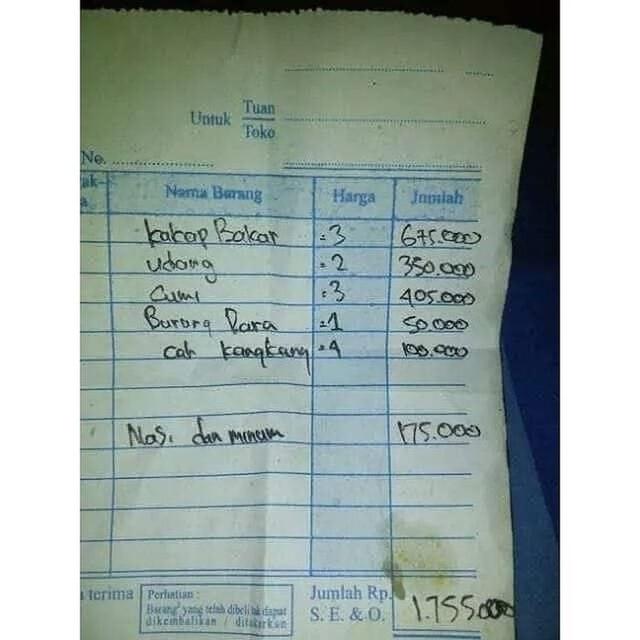 Untuk Tuan
Toko
No.
Nama Barang Harga Jumlah
kakap Bakar = 3 675.000
udang = 2 350.000
Cumi = 3 405.000
Burung Dara = 1 50.000
cah kangkung = 4 100.000
Nasi dan minum 175.000
terima Perhatian : Jumlah Rp. 1.755.000
Barang² yang telah dibeli tak dapat S. E. & O.
dikembalikan / ditukarkan